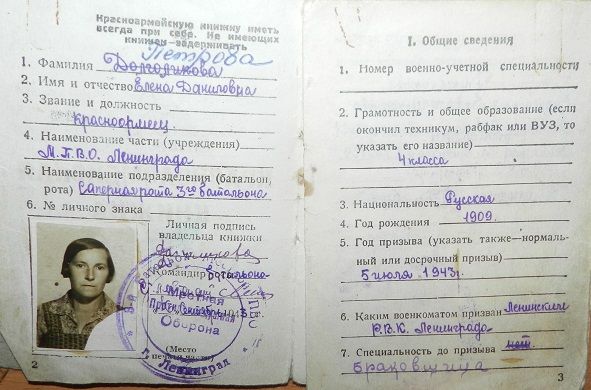 Красноармейскую книжку иметь
всегда при себе. Не имеющих
книжки—задерживать
Петрова
1. Фамилия Долгополова
2. Имя и отчество Елена Даниловна
3. Звание и должность
Красноармеец
4. Наименование части (учреждения)
М.П.В.О. Ленинграда
5. Наименование подразделения (батальон,
рота) Саперная рота 3го батальона
6. № личного знака
Личная подпись
владельца книжки
Командир роты батальона
3-й
Местная
Противовоздушная
Оборона
г. Ленинград
(Место
печати части)
2
1. Общие сведения
1. Номер военно-учетной специальности
2. Грамотность и общее образование (если
окончил техникум, рабфак или ВУЗ, то
указать его название)
4 класса
3. Национальность Русская
4. Год рождения 1909.
5. Год призыва (указать также—нормаль-
ный или досрочный призыв)
5 июля 1943г.
6. Каким военкоматом призван Ленинским
Р.В.К. Ленинграда
7. Специальность до призыва нет.
браковщица
3